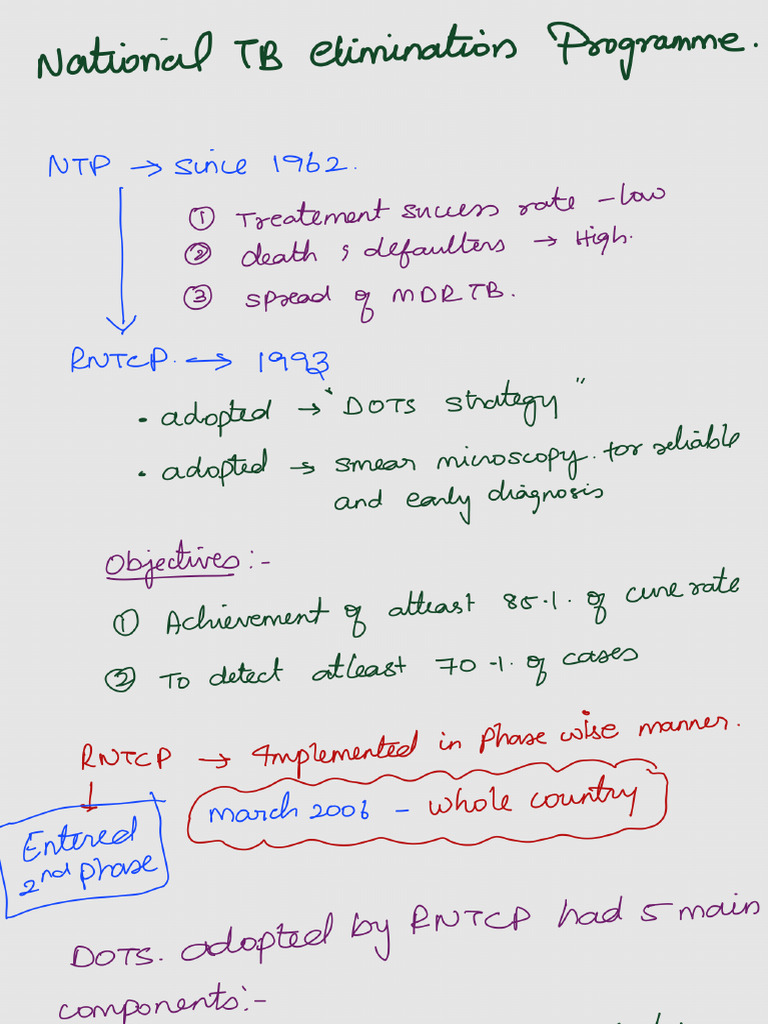 National TB elimination Programme.
NTP → since 1962.
① Treatement success rate - low
② death & defaulters → High.
③ spread of MDR TB.
RNTCP. → 1993
• adopted → "DOTS strategy"
• adopted → smear microscopy. for reliable
and early diagnosis
Objectives:-
① Achievement of atleast 85 %. of cure rate
② To detect atleast 70 %. of cases
RNTCP → Implemented in Phase wise manner.
march 2006 - whole country
Entered
2nd phase
DOTS. adopted by RNTCP had 5 main
components:-